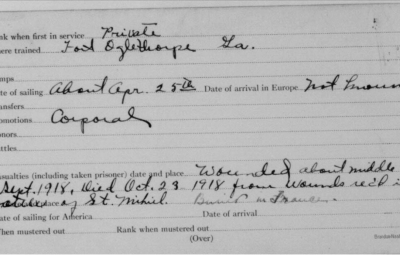 nk when first in service Private
ere trained Fort Oglethorpe Ga.
mps
te of sailing About Apr. 25th Date of arrival in Europe Not known
ansfers
omotions Corporal
nors
ttles
sualties (including taken prisoner) date and place Wounded about middle
Sept. 1918. Died Oct. 23 1918 from wounds rec'd i
place of St. Mihiel. Buried in France.
ate of sailing for America Date of arrival
When mustered out Rank when mustered out
(Over)